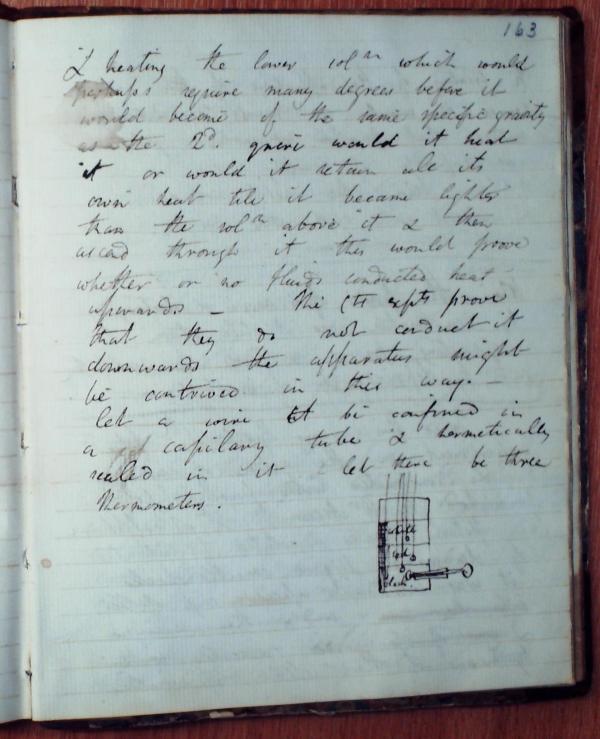 163
& heating the lower sol^n which would
perhaps require many degrees before it
would become of the same specific gravity
as the 2^d. quere would it heat
it or would it retain all its
own heat till it became lighter
than the sol^n above it & then
ascend through it this would prove
whether or no fluids conducted heat
upwards — The C^ts expts prove
that they do not conduct it
downwards the apparatus might
be contrived in this way. —
let a wire be confined in
a capilary tube & hermetically
sealed in it let there be three
Thermometers.
white
red
black